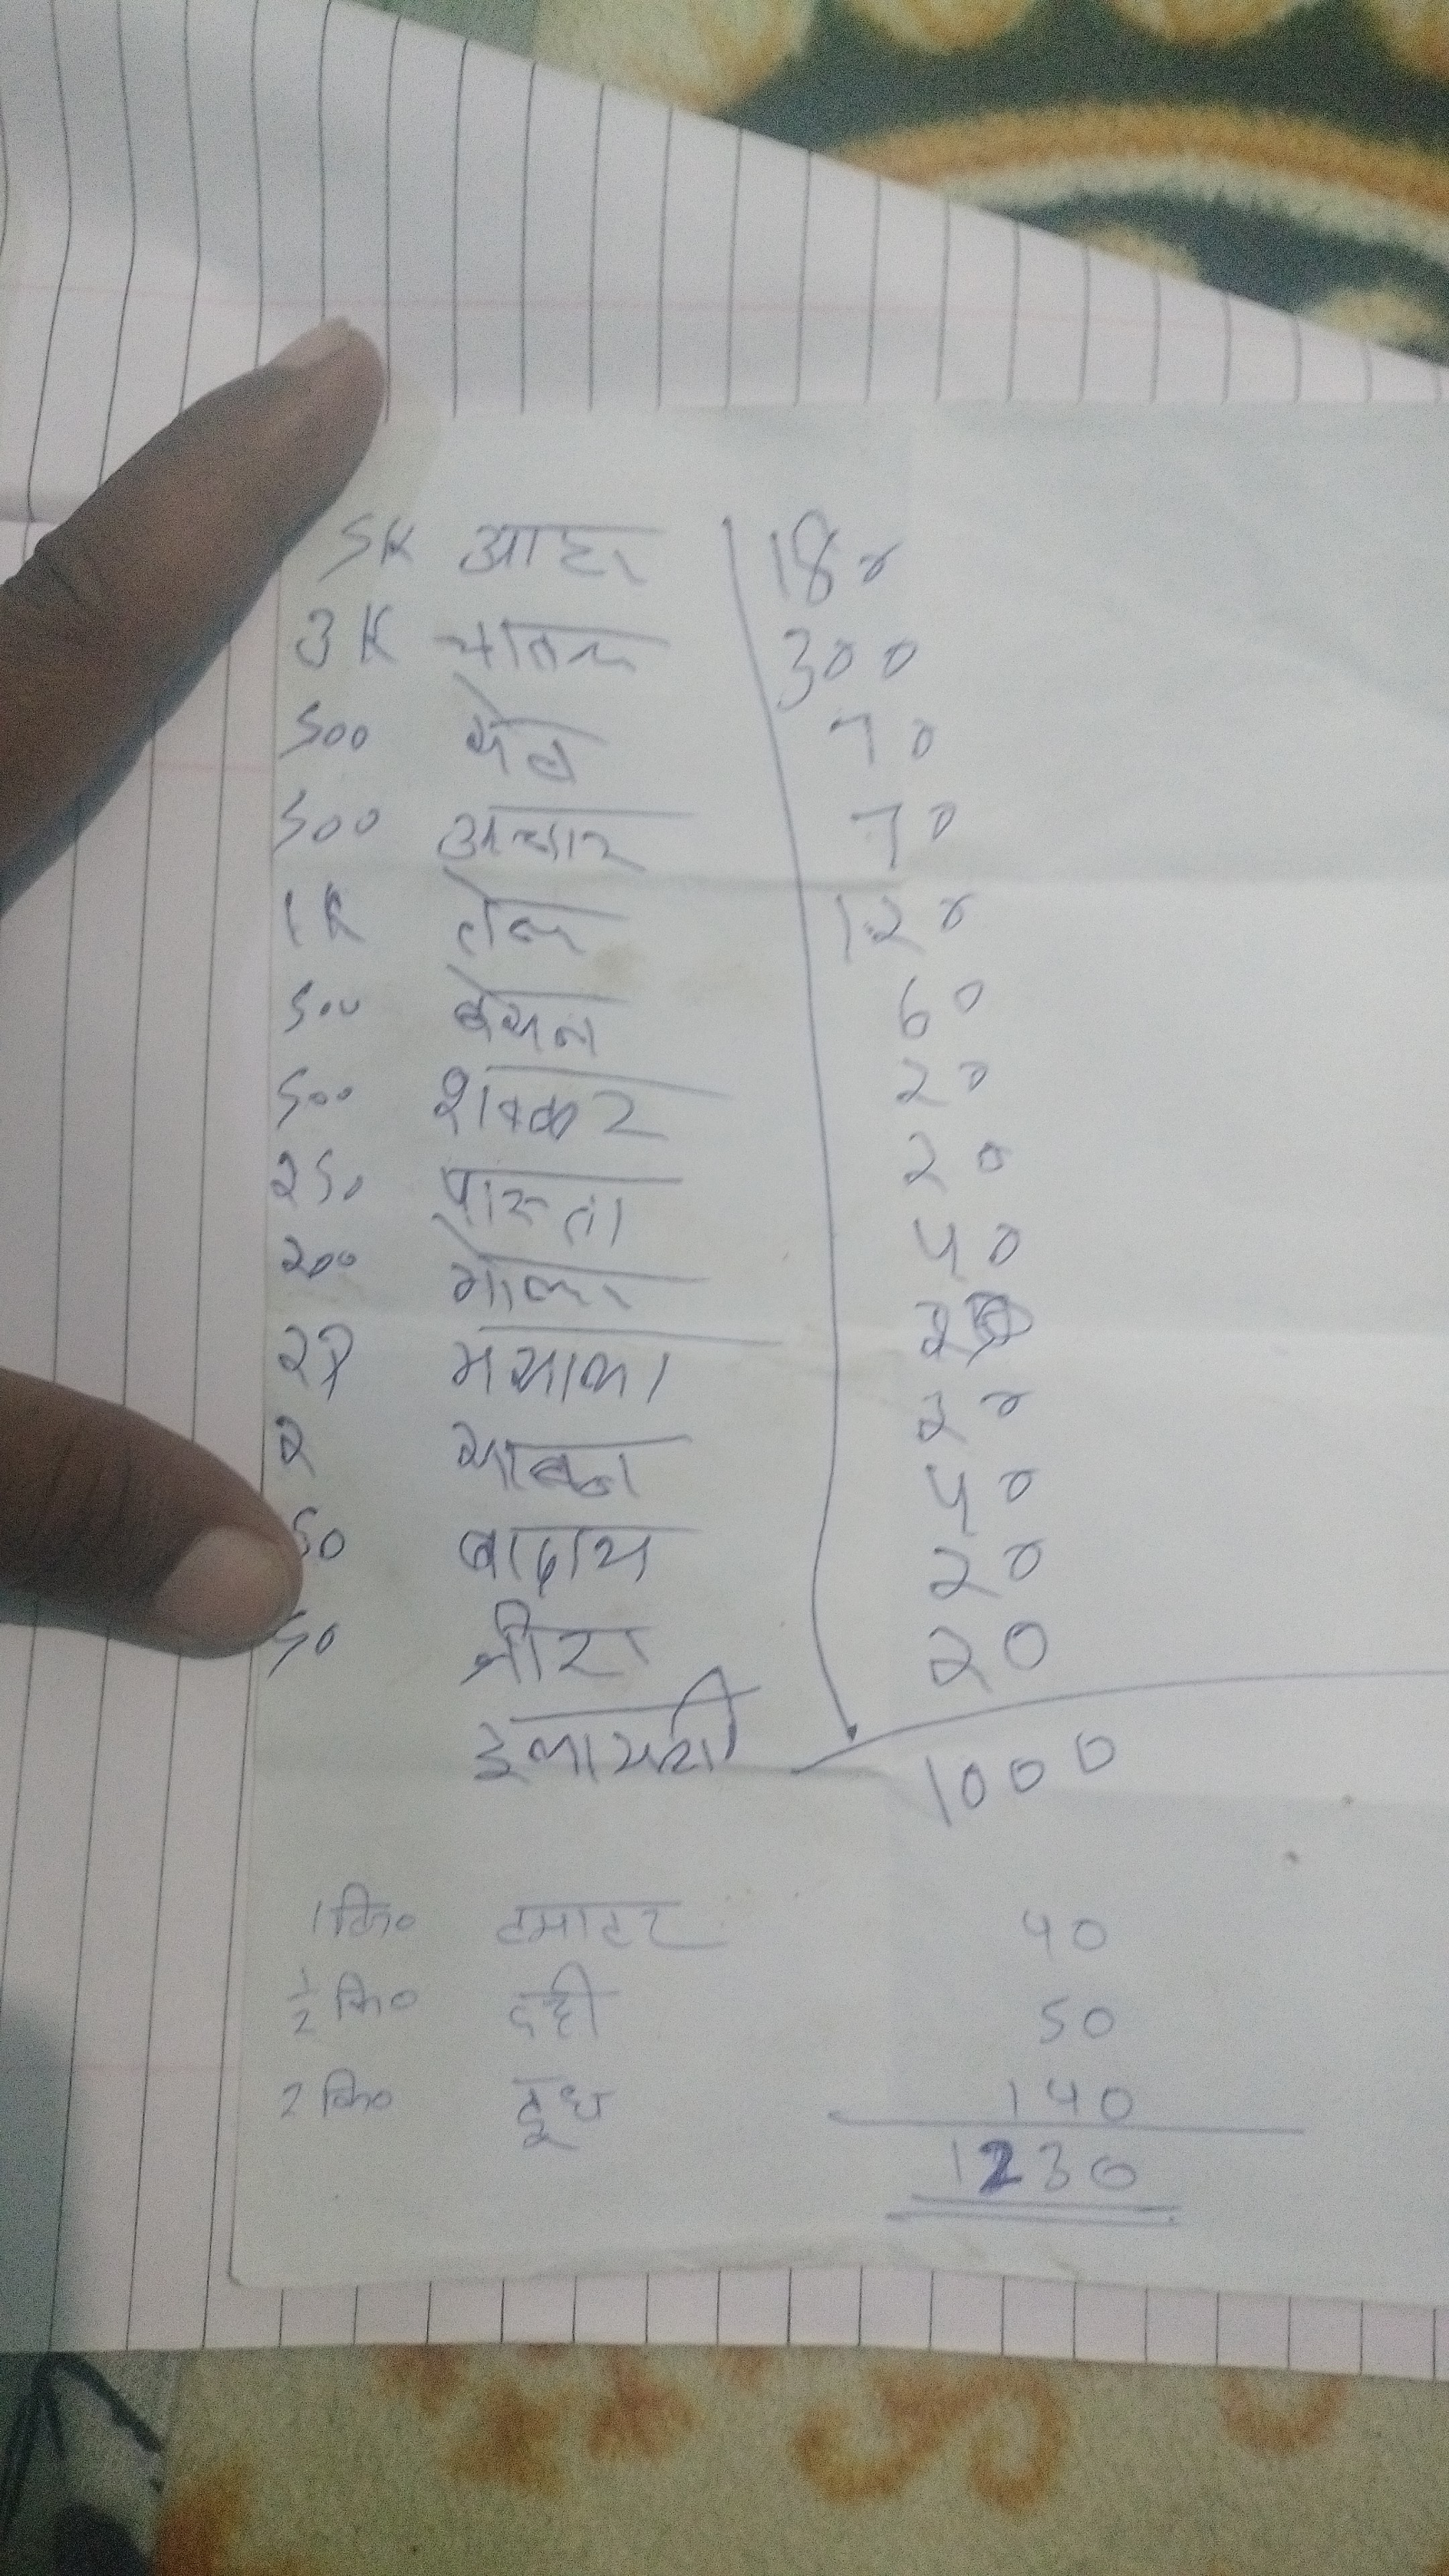 5K आटा 180
3K चावल 300
500 सेव 70
500 अचार 70
1K तेल 120
500 बेसन 60
500 शक्कर 20
250 पास्ता 20
200 गोला 40
मसाला
2 साबुन 20
50 बादाम 40
50 जीरा 20
इलायची 20
1000
1 कि० टमाटर 40
1/2 कि० दही 50
2 कि० दूध 140
1230